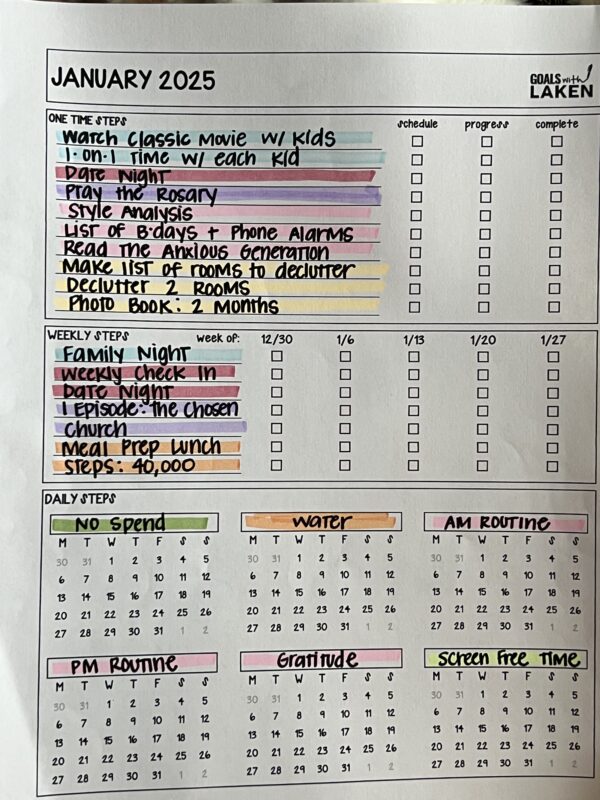 JANUARY 2025
GOALS with
LAKEN
ONE TIME STEPS schedule progress complete
Watch Classic Movie w/ Kids
1-on-1 Time w/ each Kid
Date Night
Pray the Rosary
Style Analysis
List of B-days + Phone Alarms
Read The Anxious Generation
Make list of rooms to declutter
Declutter 2 Rooms
Photo Book: 2 Months
WEEKLY STEPS week of: 12/30 1/6 1/13 1/20 1/27
Family Night
Weekly Check In
Date Night
1 Episode: The Chosen
Church
Meal Prep Lunch
Steps: 40,000
DAILY STEPS
No Spend Water AM Routine
M T W T F S S M T W T F S S M T W T F S S
30 31 1 2 3 4 5 30 31 1 2 3 4 5 30 31 1 2 3 4 5
6 7 8 9 10 11 12 6 7 8 9 10 11 12 6 7 8 9 10 11 12
13 14 15 16 17 18 19 13 14 15 16 17 18 19 13 14 15 16 17 18 19
20 21 22 23 24 25 26 20 21 22 23 24 25 26 20 21 22 23 24 25 26
27 28 29 30 31 1 2 27 28 29 30 31 1 2 27 28 29 30 31 1 2
PM Routine Gratitude Screen Free Time
M T W T F S S M T W T F S S M T W T F S S
30 31 1 2 3 4 5 30 31 1 2 3 4 5 30 31 1 2 3 4 5
6 7 8 9 10 11 12 6 7 8 9 10 11 12 6 7 8 9 10 11 12
13 14 15 16 17 18 19 13 14 15 16 17 18 19 13 14 15 16 17 18 19
20 21 22 23 24 25 26 20 21 22 23 24 25 26 20 21 22 23 24 25 26
27 28 29 30 31 1 2 27 28 29 30 31 1 2 27 28 29 30 31 1 2